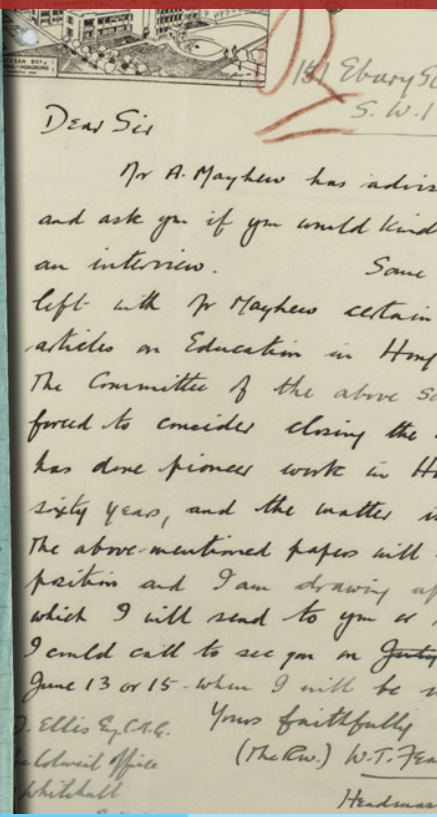 151 Ebury St
S.W.1
Dear Sir
Mr A. Mayhew has advis
and ask you if you would kind
an interview. Some
left with Mr Mayhew certain
articles on Education in Hong
The Committee of the above Sc
forced to consider closing the
has done pioneer work in Ho
sixty years, and the matter i
The above-mentioned papers will
position and I am drawing up
which I will send to you or
I could call to see you on July
June 13 or 15 - when I will be
Yours faithfully
(The Rev.) W.T. Fea
Headmas
D. Ellis Esq. C.M.G.
Colonial Office
Whitehall